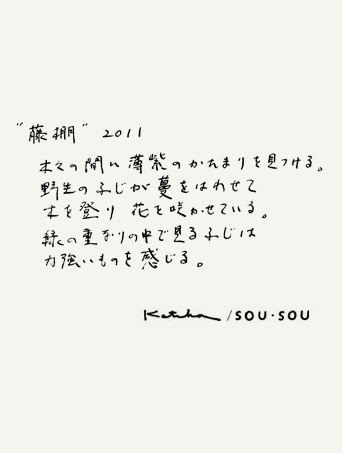 "藤棚" 2011
木々の間に薄紫のかたまりを見つける。
野生のふじが蔓をはわせて
木を登り 花を咲かせている。
緑の重なりの中で見るふじは
力強いものを感じる。
/SOU・SOU